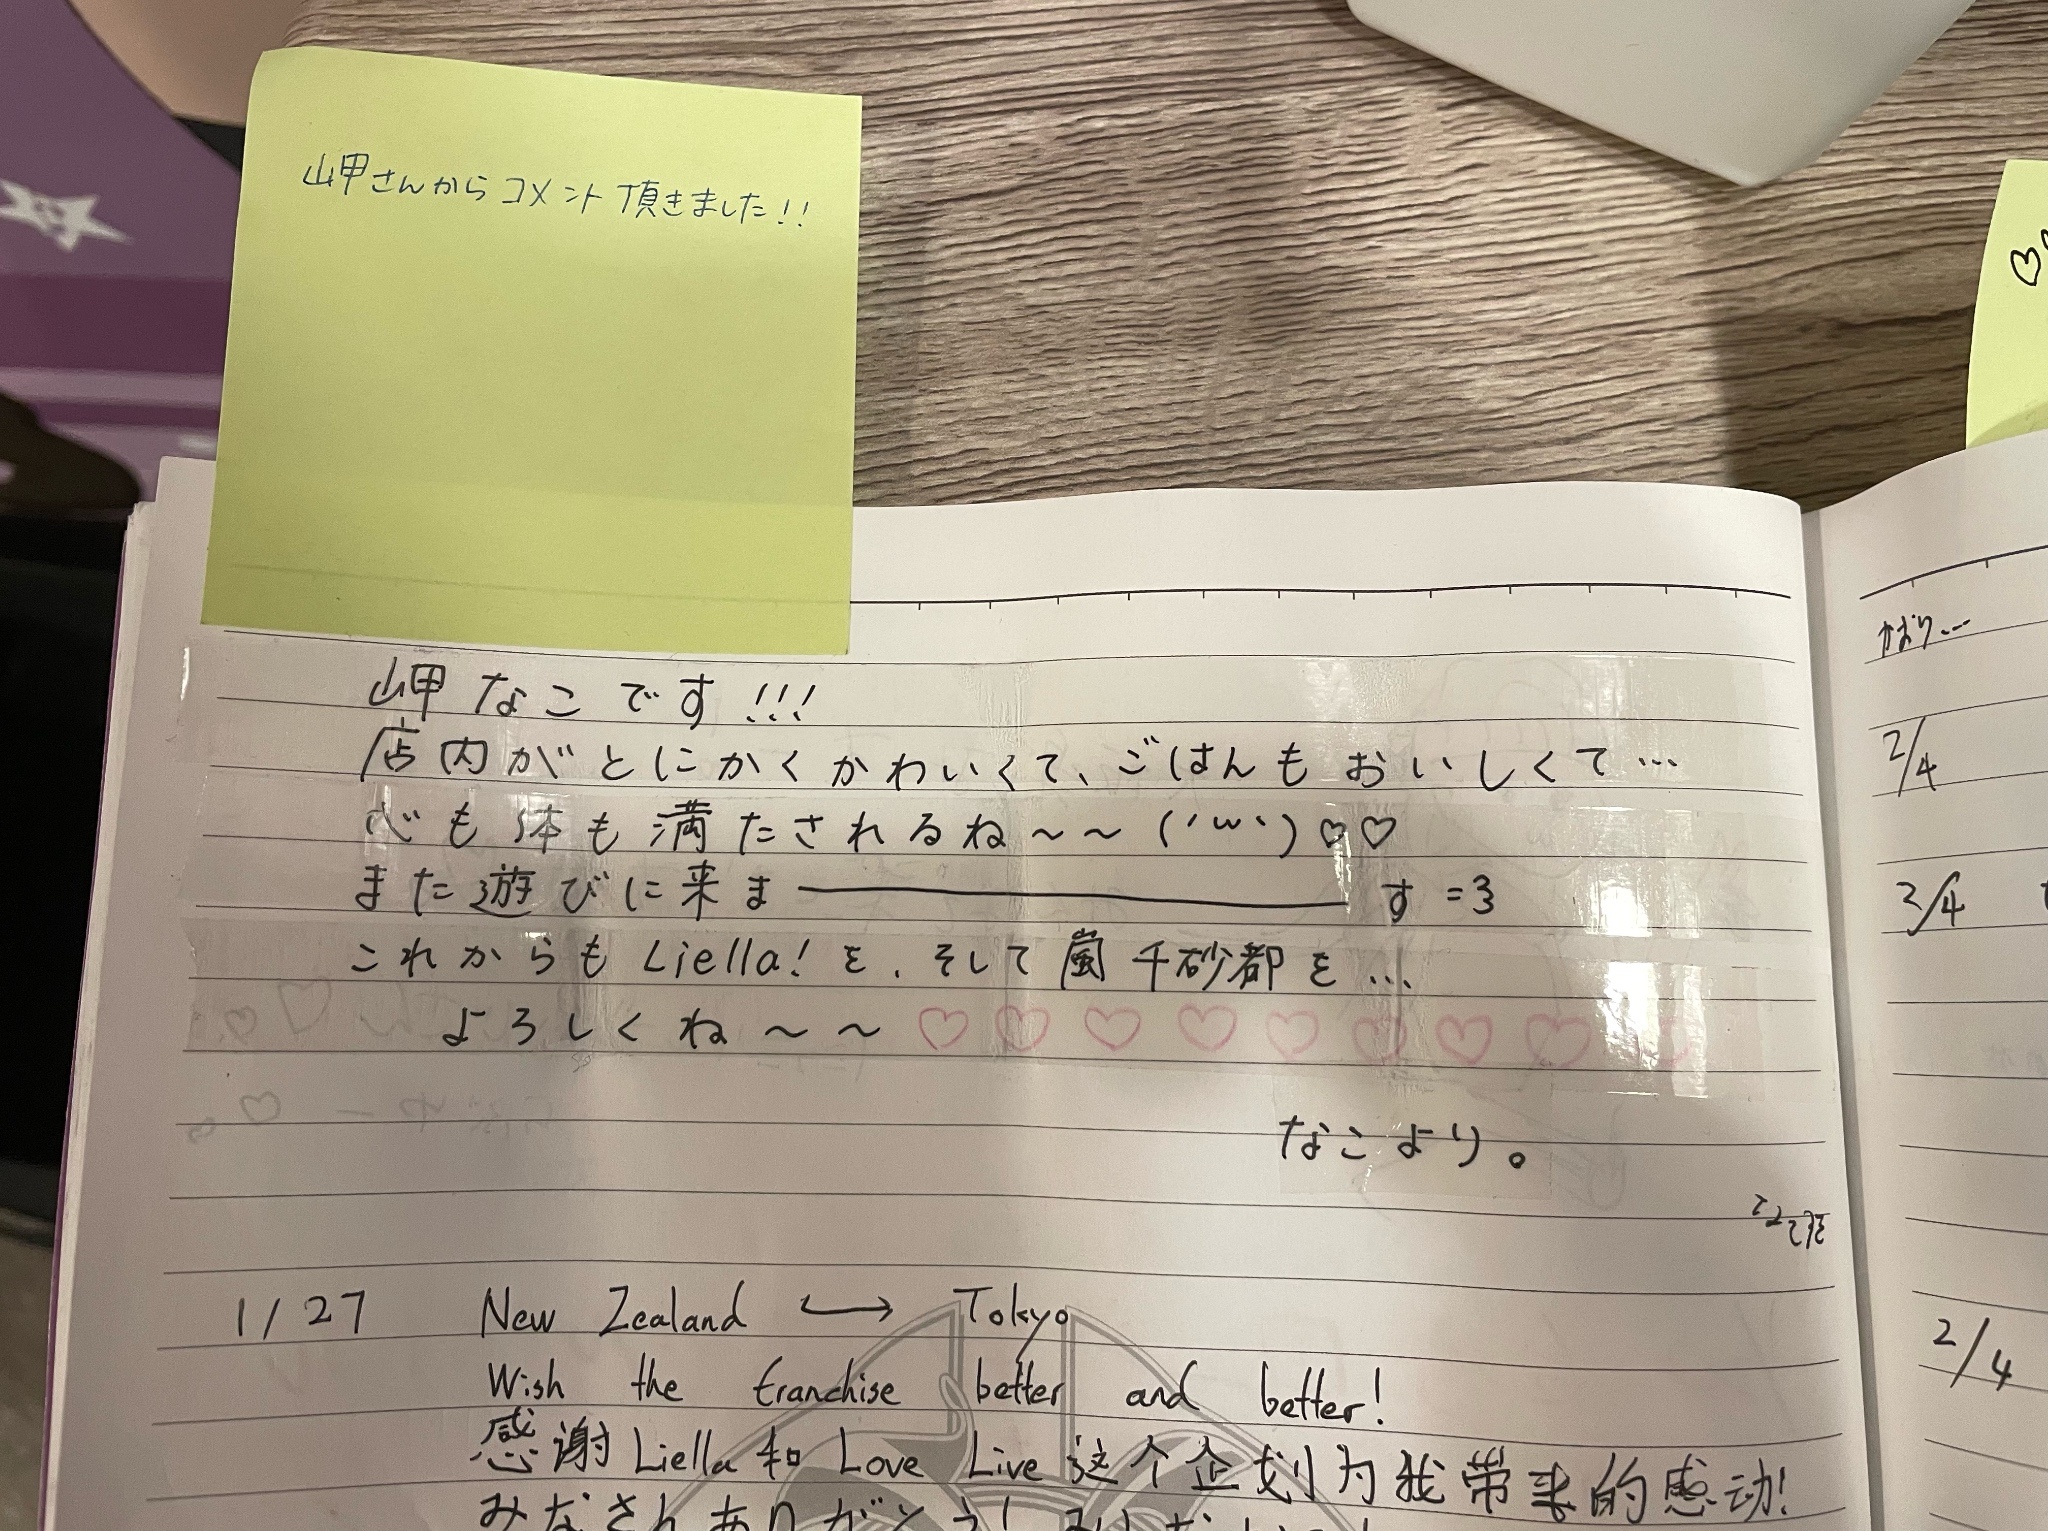 岬さんからコメント頂きました!!
岬 なこです!!!
店内がとにかくかわいくて、ごはんもおいしくて…
心も体も満たされるね〜〜(´ω`)♡♡
また遊びに来ま────す =3
これからも Liella! を、そして 嵐 千砂都を…
よろしくね〜〜♡♡♡♡♡♡♡♡♡
なこより。
1/27 New Zealand ⟷ Tokyo
Wish the franchise better and better!
感谢 Liella 和 Love Live 这个企划为我带来的感动!
みなさんありがとう!
かおり…
2/4
3/4
2/4